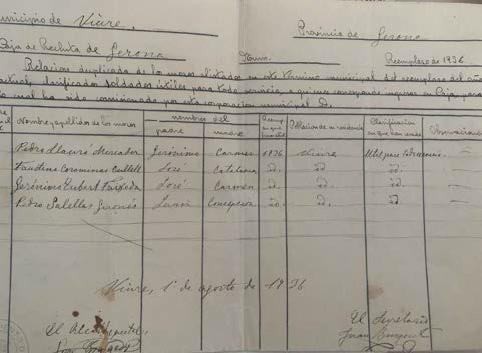 Municipio de Viure. Provincia de Gerona
Caja de Recluta de Gerona Núm. Reemplazo de 1936
Relación duplicada de los mozos alistados en este término municipal del reemplazo del año
actual, clasificados soldados útiles para todo servicio, a quienes corresponde ingresar en Caja, para
lo cual ha sido comisionado por esta corporación municipal D.
Nombre y apellidos de los mozos nombre del padre madre Población de su residencia Clasificación Observaciones
Pedro Llauró Mercader Jerónimo Carmen 1936 Viure Útil para todo servicio —
Faustino Corominas José Catalana id. id. id —
Jerónimo José Carmen id. id. id —
Pedro Salellas Juan Concepción id. id. id —
Viure, 1º de agosto de 1936
El Alcalde El Secretario
Juan